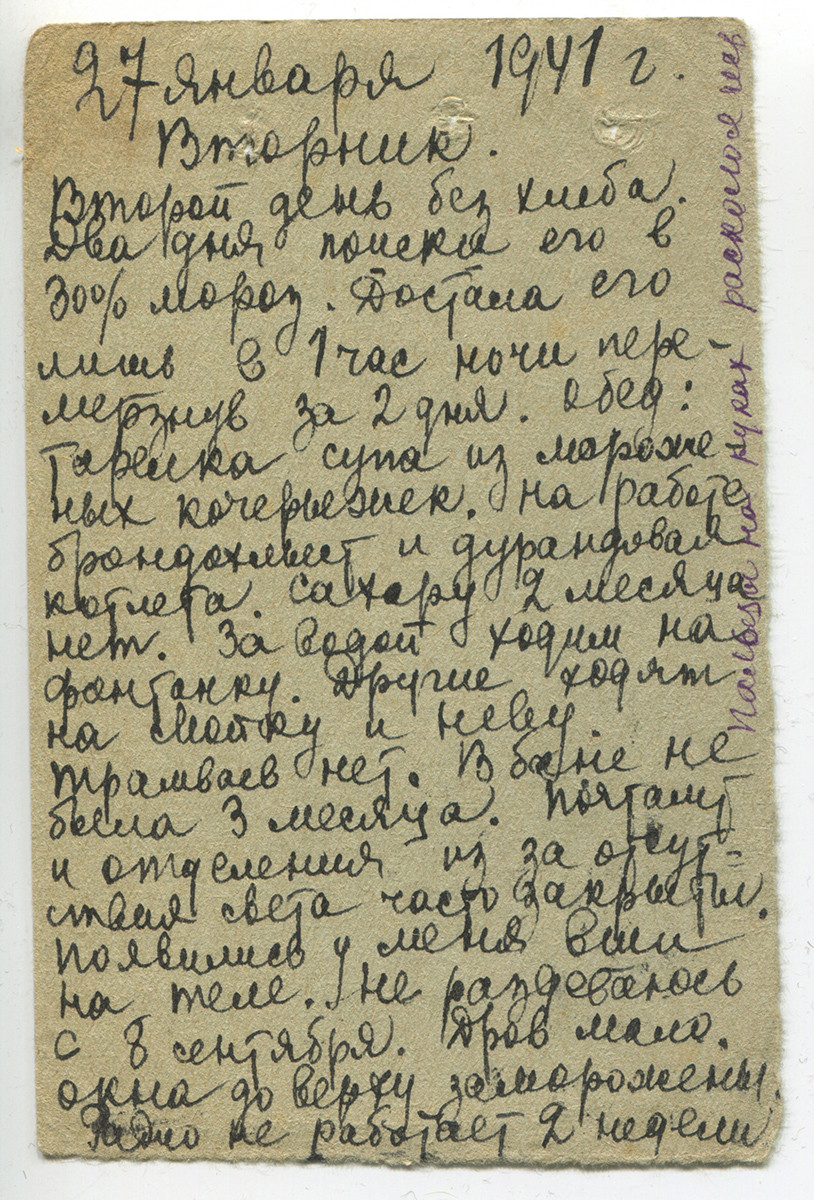 27 января 1941 г.
Вторник.
Второй день без хлеба.
Два дня поиски его в
30% мороз. Достала его
лишь в 1 час ночи пере-
мерзнув за 2 дня. Обед:
тарелка супа из мороже
ных кочерыжек. На работе
брандахлыст и дурандовая
котлета. Сахару 2 месяца
нет. За водой ходим на
фонтанку. Другие ходят
на Мойку и Неву.
Трамваев нет. В бане не
была 3 месяца. Почтамт
и отделения из за отсут=
ствия света часто закрыты.
Появились у меня вши
на теле. Не раздеваюсь
с 8 сентября. Дров мало.
окна до верху заморожены.
Радио не работает 2 недели
на руках